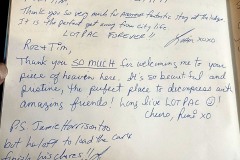 Thank you so very much for fantastic stay at the lodge
It is the perfect get away from city life
LOTPAC FOREVER!!
Karen xoxo
Roz + Tim,
Thank you SO MUCH for welcoming me to your
piece of heaven here. It's so beautiful and
pristine, the perfect place to decompress with
amazing friends! Long live LOTPAC ☺!
cheers, xo
P.S Jamie Harrison too
but he's off to load the car &
finish his chores!!